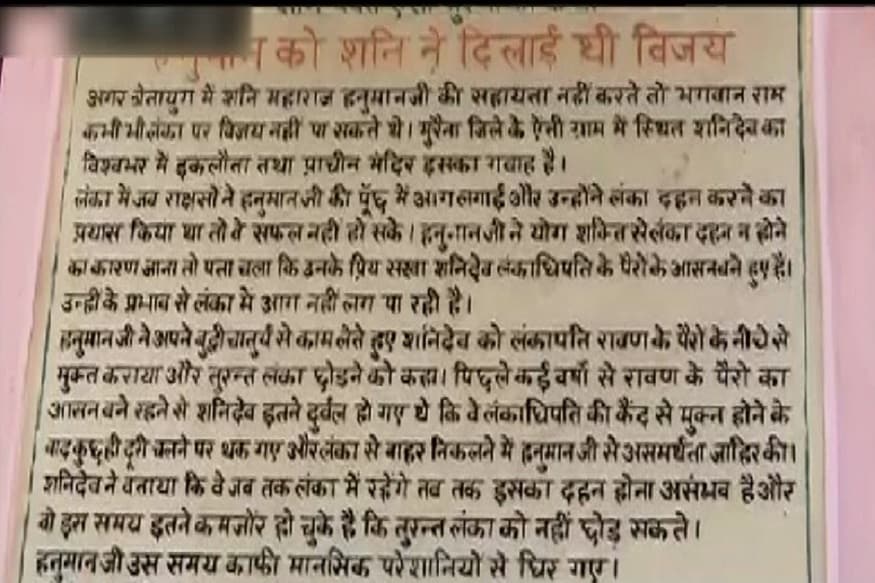 हनुमान को शनि ने दिलाई थी विजय
अगर त्रेतायुग में शनि महाराज हनुमानजी की सहायता नहीं करते तो भगवान राम
कभी भी लंका पर विजय नहीं पा सकते थे। मुरैना जिले के ऐंती ग्राम में स्थित शनिदेव का
विश्वभर में इकलौता तथा प्राचीन मंदिर इसका गवाह है।
लंका में जब राक्षसो ने हनुमान जी की पूँछ में आग लगाई और उन्होंने लंका दहन करने का
प्रयास किया था तो वे सफल नहीं हो सके। हनुमानजी ने योग शक्ति से लंका दहन न होने
का कारण जाना तो पता चला कि उनके प्रिय सखा शनिदेव लंकाधिपति के पैरो के आसन बने हुए है।
उन्हीं के प्रभाव से लंका में आग नहीं लग पा रही है।
हनुमान जी ने अपने बुद्धी चातुर्य से काम लेते हुए शनिदेव को लंकापति रावण के पैरो के नीचे से
मुक्त कराया और तुरन्त लंका छोडने को कहा। पिछले कई वर्षो से रावण के पैरो का
आसन बने रहने से शनिदेव इतने दुर्वल हो गए थे कि वे लंकाधिपति की कैद से मुक्त होने के
बाद कुछ ही दूरी चलने पर थक गए और लंका से बाहर निकलने में हनुमान जी से असमर्थता जाहिर की।
शनिदेव ने वताया कि वे जव तक लंका में रहेंगे तव तक इसका दहन होना असंभव है और
वो इस समय इतने कमजोर हो चुके है कि तुरन्त लंका को नहीं छोड़ सकते।
हनुमान जी उस समय काफी मानसिक परेशानियो से घिर गए।